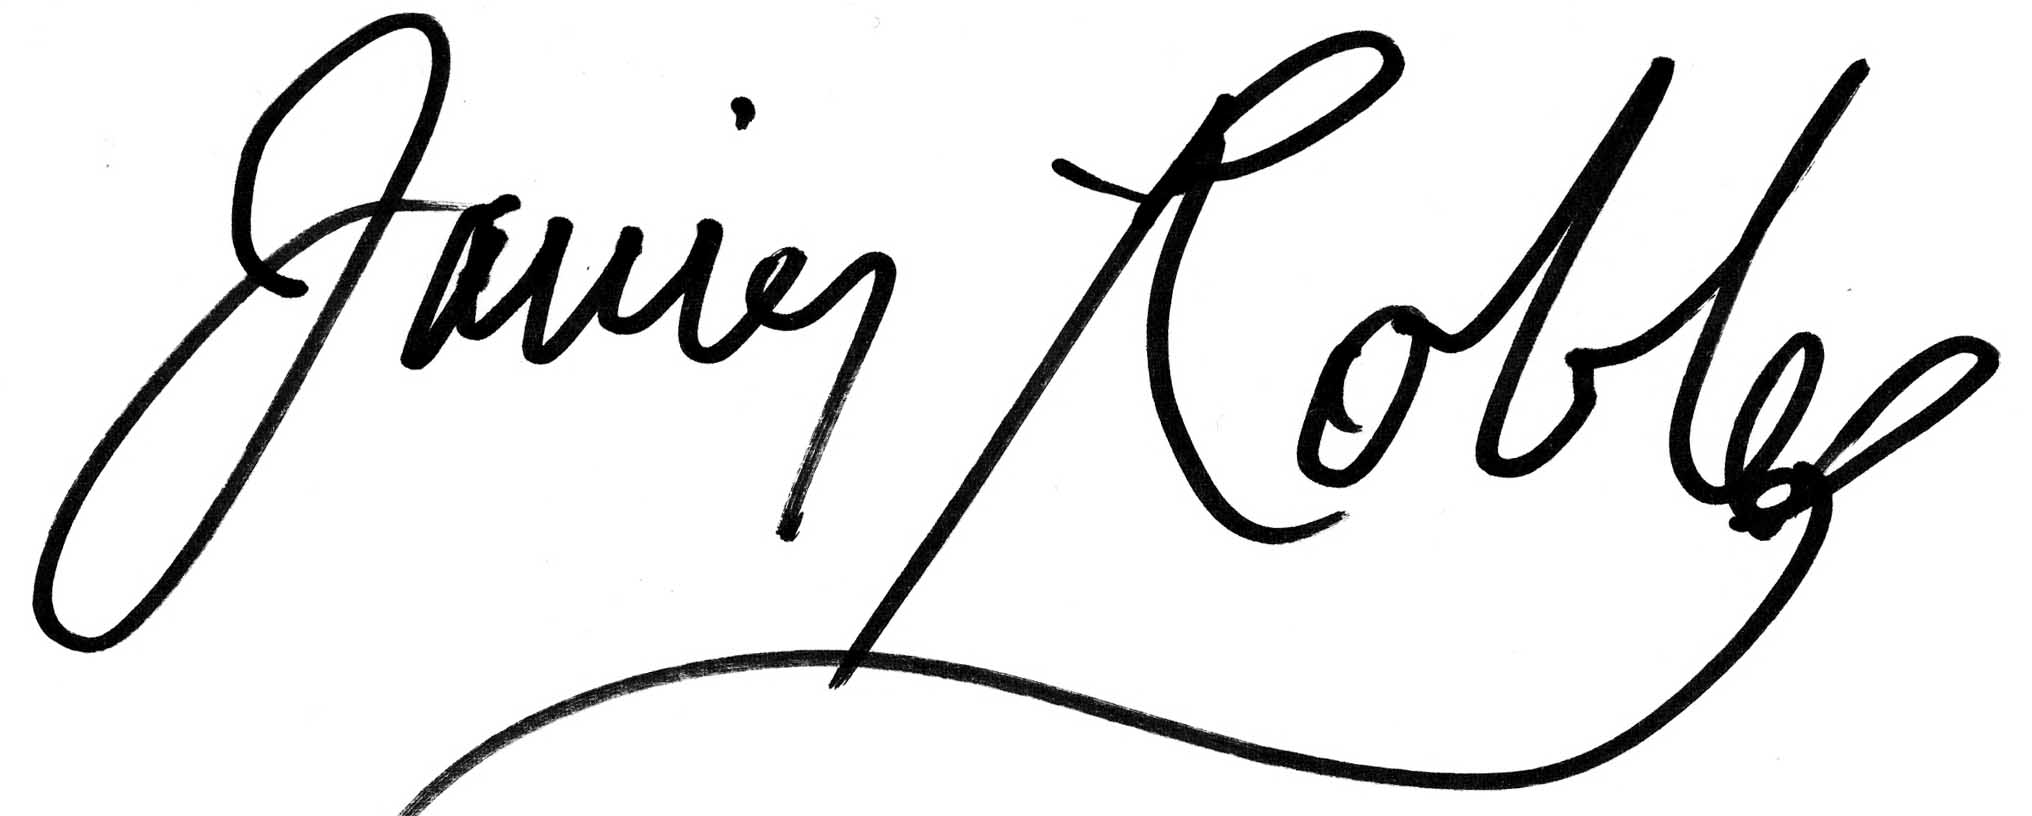 Javier Robles